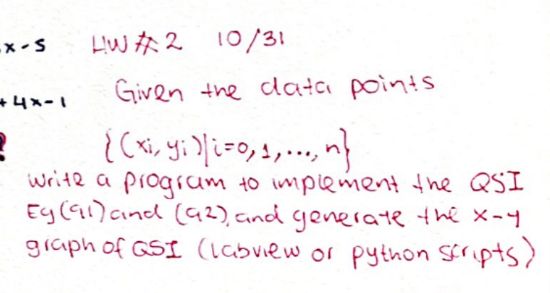 x-5 HW #2 10/31
+4x-1 Given the data points
{(xi, yi)|i=0,1,...,n}
write a program to implement the QSI
Eq (91) and (92), and generate the x-y
graph of QSI (labview or python scripts)